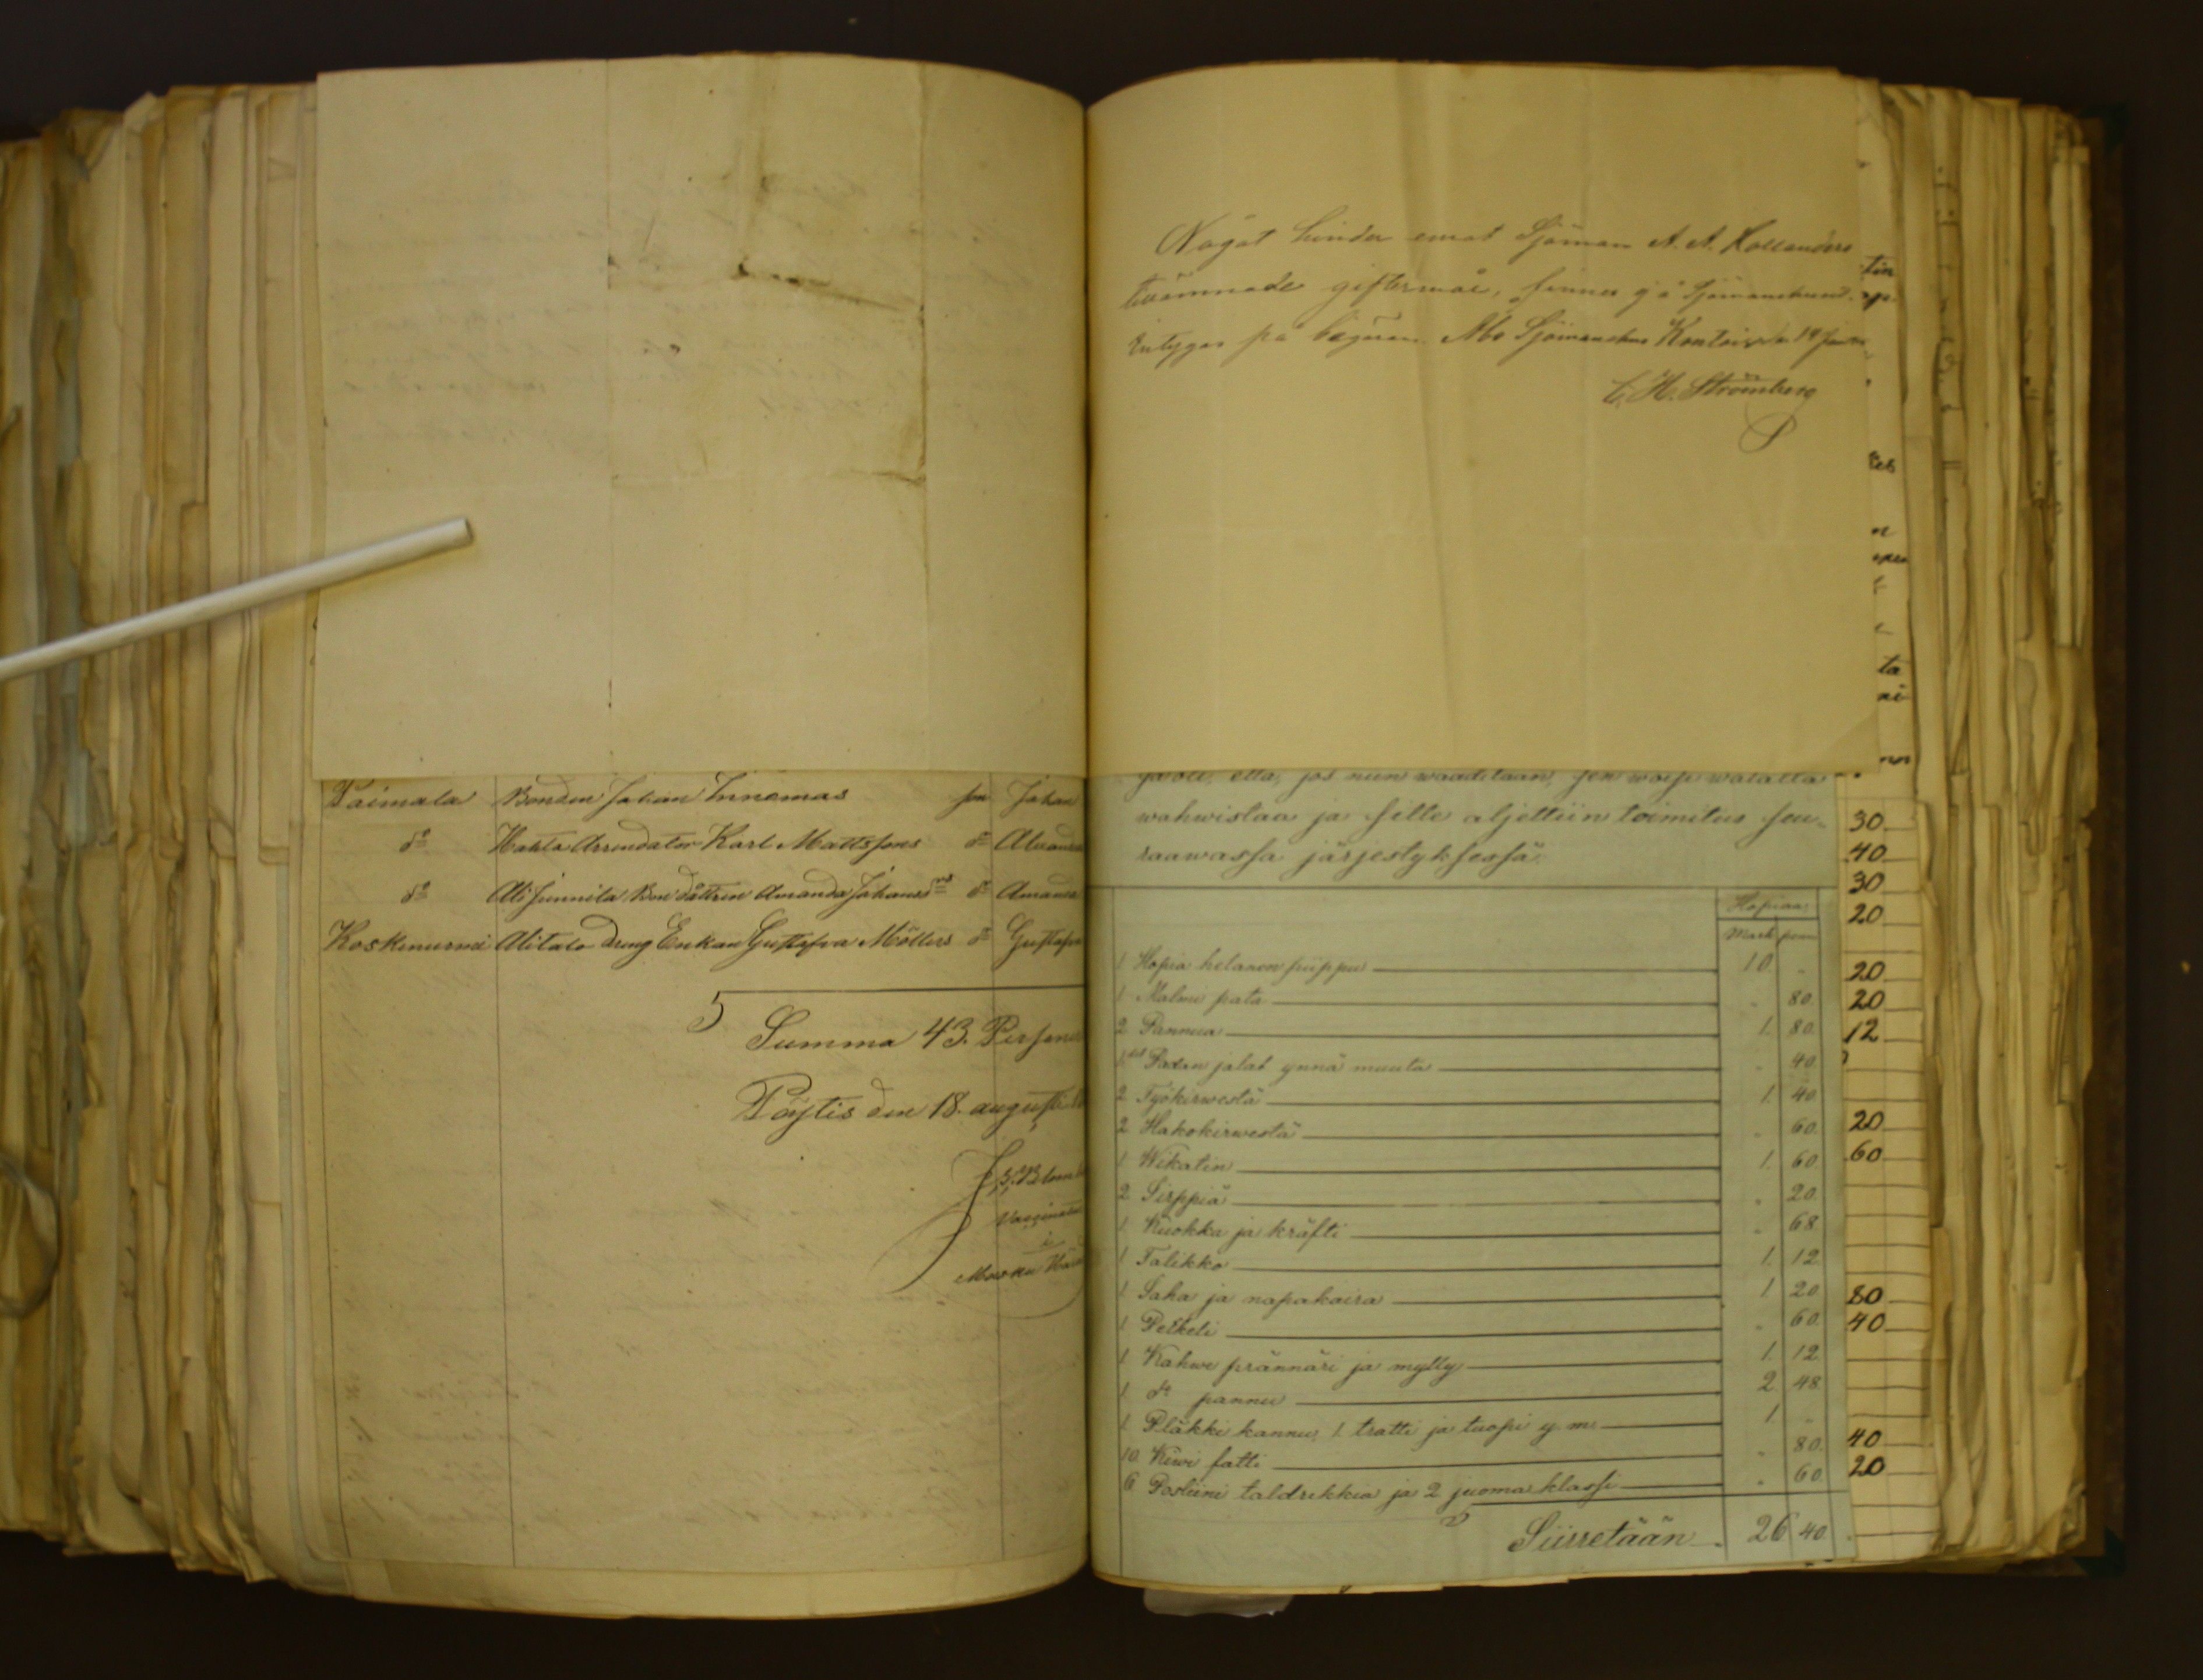 Paimala Bonden Johan Innomas son Johan
do Hakla Arrendator Karl Mattssons do
do Ali Junnila Bon dåttren Amanda Johansd:rs do Amanda
Koskinurmi Alitalo dreng Enkan Gustafva Möllers do Gustafva
Summa 43. Personer
Pöytis den 18. augusti
Något hinder emot Sjöman A. A. Hollanders
tillämnade giftermål, finnes ej å Sjömanshuset,
Intygas på begäran Åbo Sjömanshus Kontoir
C. H. Strömberg
ja oli, että, jos niin waaditaan, sen woipi walalla
wahwistaa ja sille aljettiin toimitus seu-
raawassa järjestyksessä.
Hopiaa:
Mark penn
1 Hopia helanen piippu 10 "
1 Malmi pata " 80.
2 Pannua 1. 80.
1 Padan jalat ynnä muuta " 40.
2 Työkirwestä 1. 40.
2 Hakokirwestä " 60.
1 Wikatin 1. 60.
2 Sirppiä " 20.
1 Kuokka ja kräfti " 68.
1 Talikko 1. 12
1 Saha ja napakaira 1 20
1 Petkeli " 60.
1 Kahwe prännäri ja mylly 1. 12
1 do pannu 2. 48.
1 Pläkki kannu, 1 tratti ja tuopi y. m. 1 "
10 Kiwi fatti " 80.
6 Posliini taldrikkia ja 2 juoma klassi " 60.
Siirretään 26 40.
30
40
30
20
20
20
12
20
60
80
40
40
20